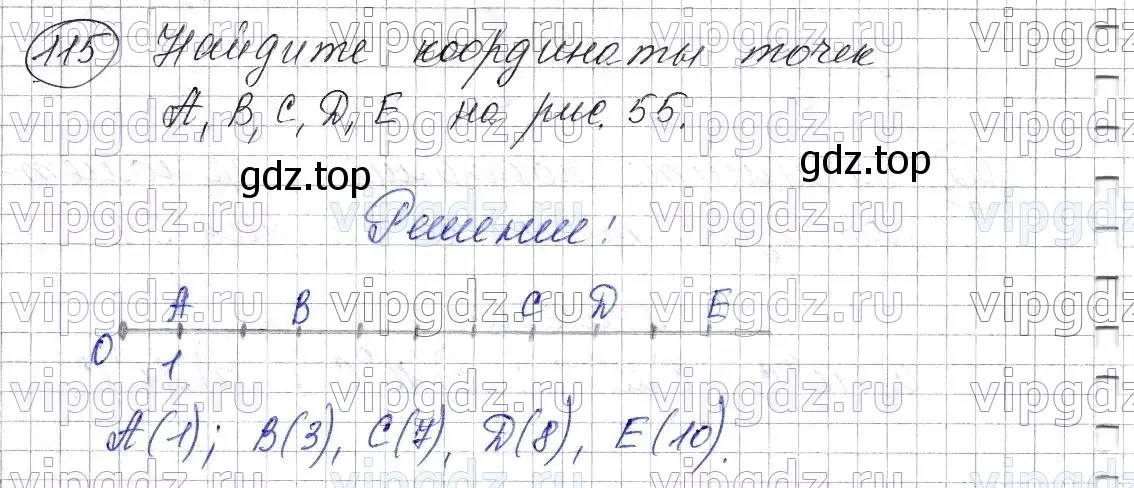 115 Найдите координаты точек
A, B, C, D, E на рис. 55.
gdz.top gdz.top
Решение:
A B C D E
O 1
A(1); B(3), C(7), D(8), E(10).
vipgdz.ru